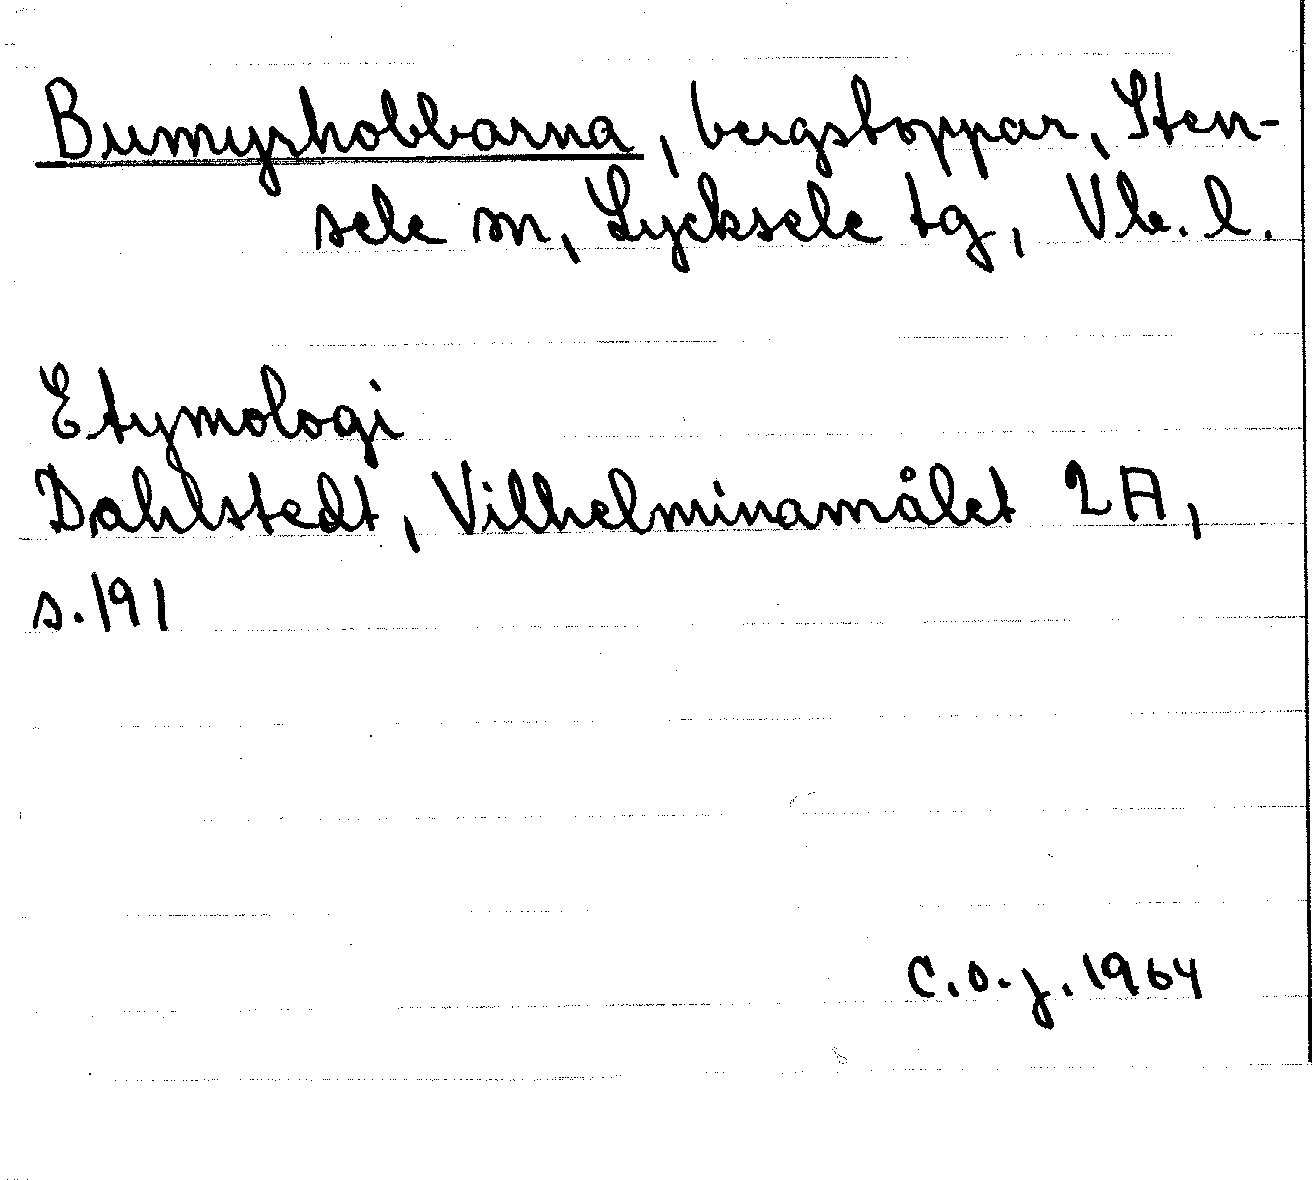 Bumyrhobbarna, bergstoppar, Sten-
sele sn, Lycksele tg, Vb. l.
Etymologi
Dahlstedt, Vilhelminamålet 2A,
s. 191
C.O.J. 1964